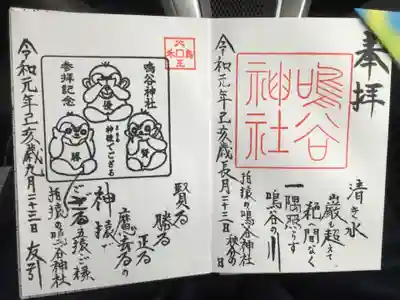 奉拝
鳴谷
神社
清き水
巌も超えて
絶へ間なく
一隅照らす
鳴谷の川
招猿の鳴谷神社
秋分の日
令和元年己亥歳長月二十三日
参拝記念
鳴谷神社
優
勝
賢
神様でござる
賢る
勝る
正る
魔が去るの
神猿
五猿ご様
招猿の鳴谷神社
令和元年己亥歳九月二十三日